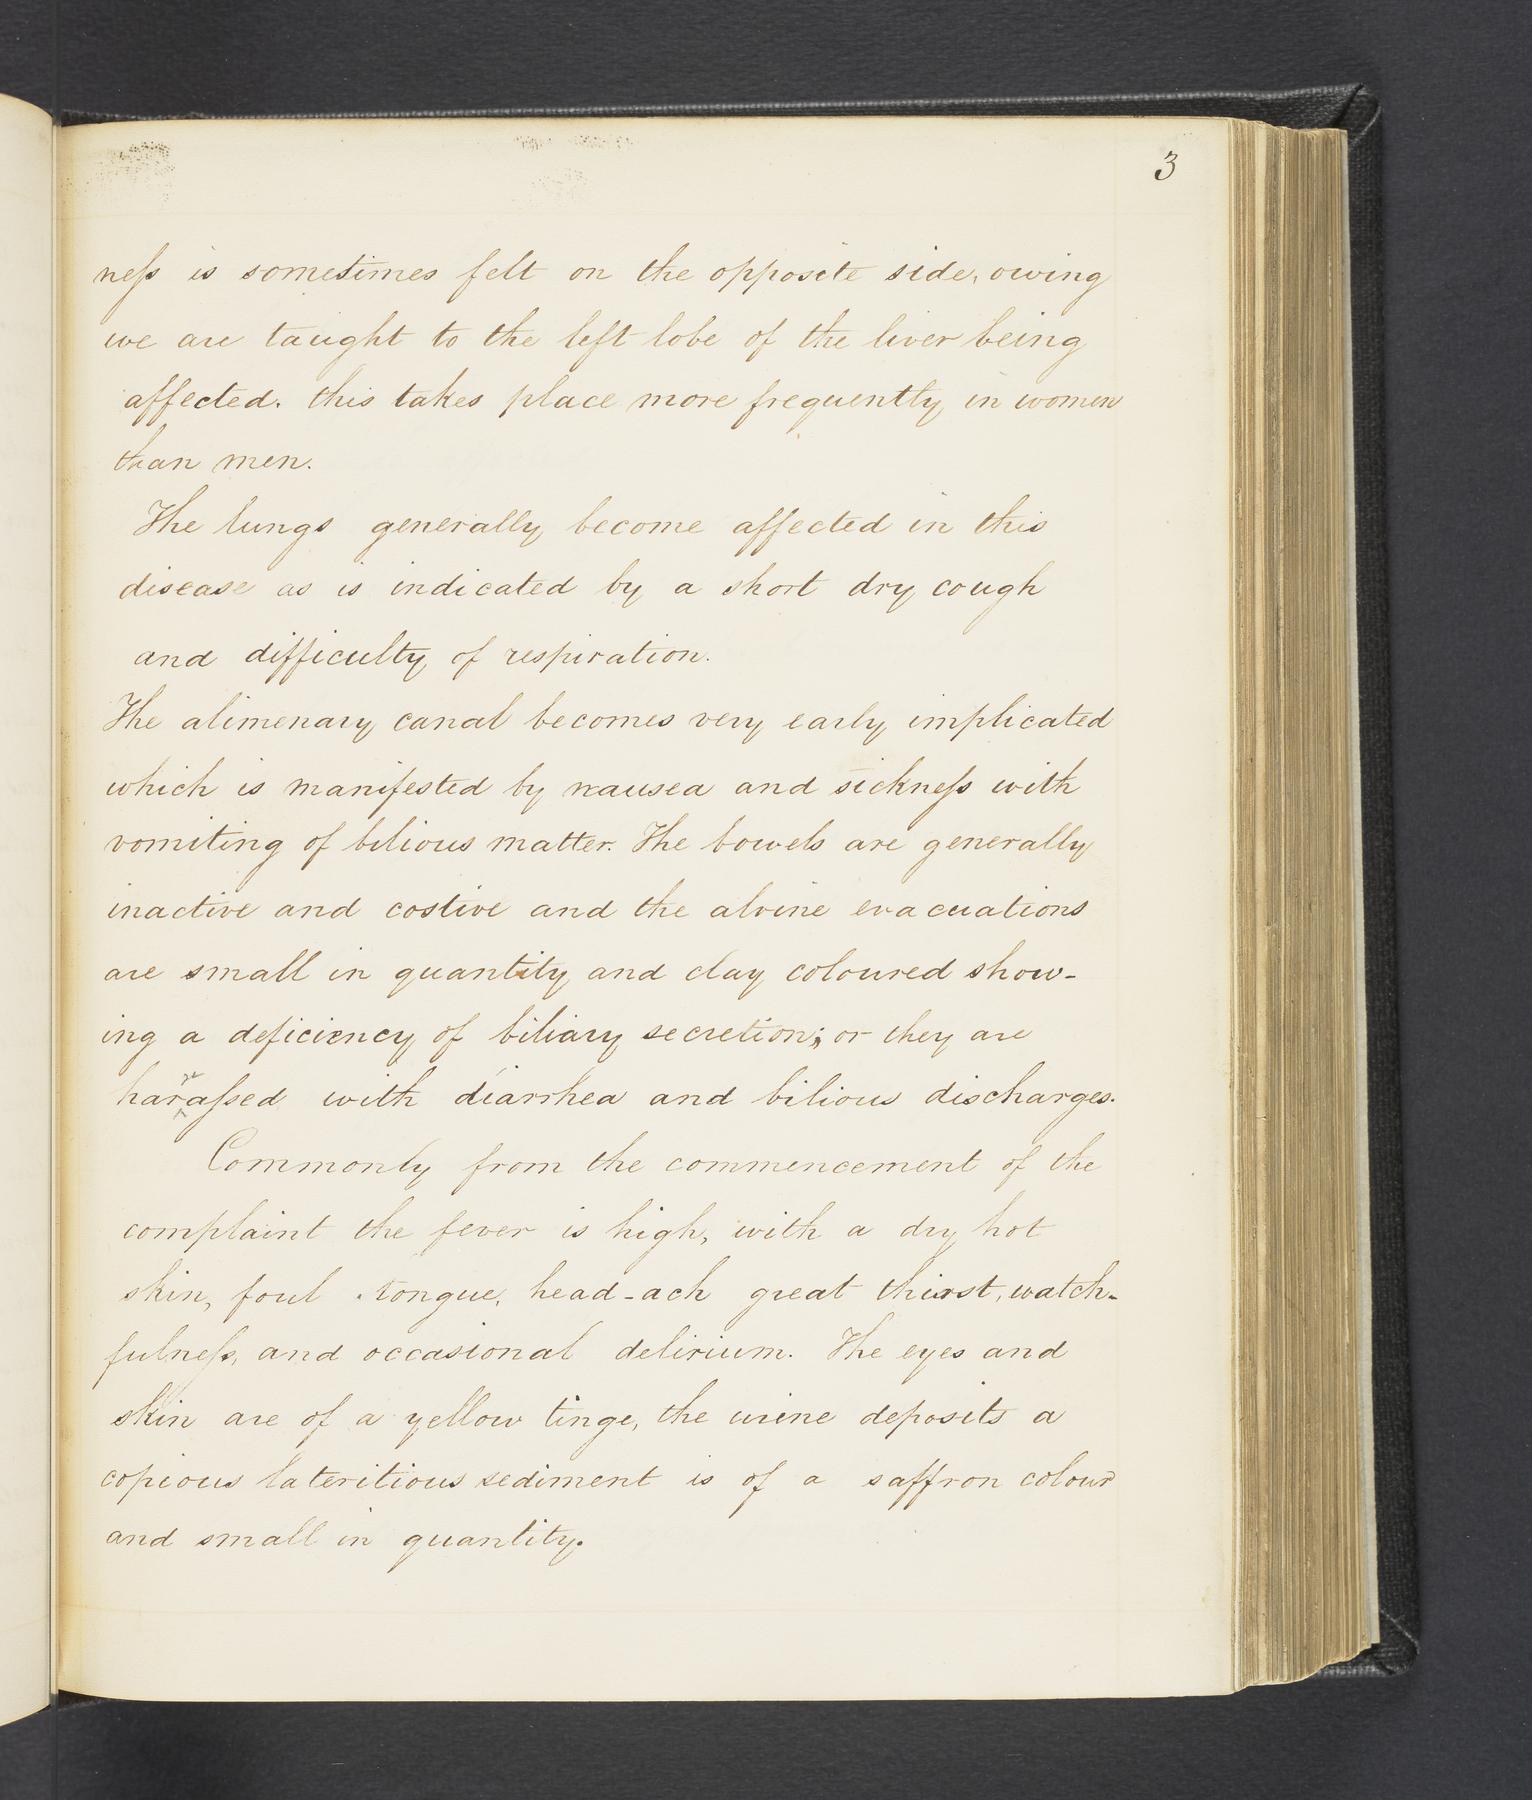 3
neſs is sometimes felt on the opposite side, owing
we are taught to the left lobe of the liver being
affected. this takes place more frequently in women
than men.
The lungs generally become affected in this
disease as is indicated by a short dry cough
and difficulty of respiration.
The alimenary canal becomes very early implicated
which is manifested by nausea and sickneſs with
vomiting of bilious matter. The bowels are generally
inactive and costive and the alvine evacuations
are small in quantity and clay coloured show-
ing a deficiency of biliary secretion; or they are
haraſsed with diarrhea and bilious discharges.
Commonly from the commencement of the
complaint the fever is high, with a dry hot
skin, foul tongue, head-ach great thirst, watch-
fulneſs, and occasional delirium. The eyes and
skin are of a yellow tinge, the urine deposits a
copious lateritious sediment is of a saffron colour
and small in quantity.